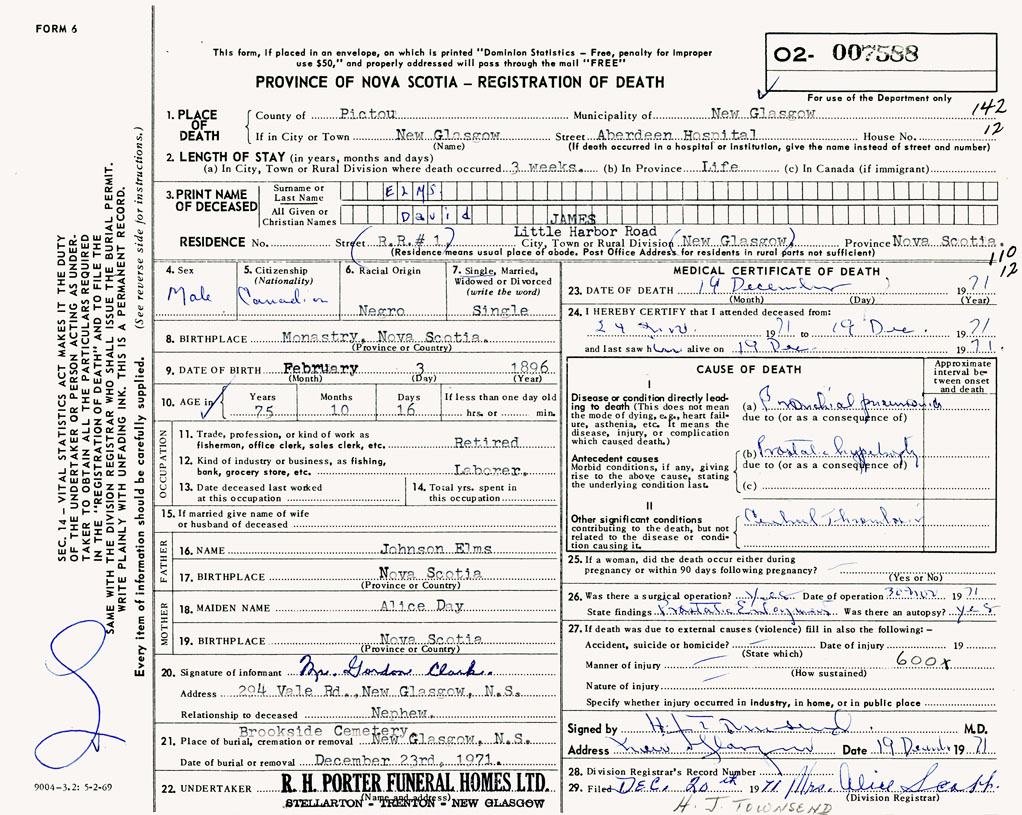 FORM 6
This form, if placed in an envelope, on which is printed "Dominion Statistics – Free, penalty for improper
use $50," and properly addressed will pass through the mail "FREE"
PROVINCE OF NOVA SCOTIA – REGISTRATION OF DEATH
02- 007588
For use of the Department only
142
12
1. PLACE OF DEATH
County of Pictou Municipality of New Glasgow
If in City or Town New Glasgow Street Aberdeen Hospital House No.
(Name) (If death occurred in a hospital or institution, give the name instead of street and number)
2. LENGTH OF STAY (in years, months and days)
(a) In City, Town or Rural Division where death occurred 3 weeks. (b) In Province Life (c) In Canada (if immigrant)
3. PRINT NAME OF DECEASED
Surname or Last Name ELMS
All Given or Christian Names David JAMES
Little Harbor Road
RESIDENCE No. Street R.R.# 1 City, Town or Rural Division (New Glasgow) Province Nova Scotia.
(Residence means usual place of abode. Post Office Address for residents in rural parts not sufficient)
110
12
4. Sex
Male
5. Citizenship
(Nationality)
Canadian
6. Racial Origin
Negro
7. Single, Married,
Widowed or Divorced
(write the word)
Single
8. BIRTHPLACE Monastry, Nova Scotia.
(Province or Country)
9. DATE OF BIRTH February 3 1896
(Month) (Day) (Year)
10. AGE in Years Months Days If less than one day old
75 10 16 hrs. or min.
OCCUPATION
11. Trade, profession, or kind of work as
fisherman, office clerk, sales clerk, etc. Retired
12. Kind of industry or business, as fishing,
bank, grocery store, etc. Laborer.
13. Date deceased last worked
at this occupation
14. Total yrs. spent in
this occupation
15. If married give name of wife
or husband of deceased
FATHER
16. NAME Johnson Elms
17. BIRTHPLACE Nova Scotia
(Province or Country)
MOTHER
18. MAIDEN NAME Alice Day
19. BIRTHPLACE Nova Scotia
(Province or Country)
20. Signature of informant Mr. Gordon Clark.
Address 294 Vale Rd., New Glasgow, N.S.
Relationship to deceased Nephew.
Brookside Cemetery
21. Place of burial, cremation or removal New Glasgow, N.S.
Date of burial or removal December 23rd, 1971.
22. UNDERTAKER R. H. PORTER FUNERAL HOMES LTD.
(Name and address)
STELLARTON - TRENTON - NEW GLASGOW
MEDICAL CERTIFICATE OF DEATH
23. DATE OF DEATH 19 December 1971
(Month) (Day) (Year)
24. I HEREBY CERTIFY that I attended deceased from:
24 Nov. 1971 to 19 Dec. 1971
and last saw him alive on 19 Dec. 1971.
CAUSE OF DEATH
Approximate
interval be-
tween onset
and death
I
Disease or condition directly lead-
ing to death (This does not mean
the mode of dying, e.g., heart fail-
ure, asthenia, etc. It means the
disease, injury, or complication
which caused death.)
(a) Bronchial pneumonia
due to (or as a consequence of)
Antecedent causes
Morbid conditions, if any, giving
rise to the above cause, stating
the underlying condition last.
(b) Prostatic hypertrophy
due to (or as a consequence of)
(c)
II
Other significant conditions
contributing to the death, but not
related to the disease or condi-
tion causing it.
Cerebral Thrombosis
25. If a woman, did the death occur either during
pregnancy or within 90 days following pregnancy?
(Yes or No)
26. Was there a surgical operation? Yes Date of operation 30 Nov 1971
State findings Prostatic Enlargement Was there an autopsy? yes
27. If death was due to external causes (violence) fill in also the following: –
Accident, suicide or homicide? Date of injury 19
(State which)
Manner of injury 600x
(How sustained)
Nature of injury
Specify whether injury occurred in industry, in home, or in public place
Signed by H.J. Townsend M.D.
Address New Glasgow Date 19 December 1971
28. Division Registrar's Record Number
29. Filed DEC. 20th 1971 Mrs. Alice
(Division Registrar)
H. J. TOWNSEND
SEC. 14 – VITAL STATISTICS ACT MAKES IT THE DUTY
OF THE UNDERTAKER OR PERSON ACTING AS UNDER-
TAKER TO OBTAIN ALL THE PARTICULARS REQUIRED
IN THE "REGISTRATION OF DEATH" AND TO FILE THE
SAME WITH THE DIVISION REGISTRAR WHO SHALL ISSUE THE BURIAL PERMIT.
WRITE PLAINLY WITH UNFADING INK. THIS IS A PERMANENT RECORD.
Every item of information should be carefully supplied. (See reverse side for instructions.)
9004-3.2: 5-2-69